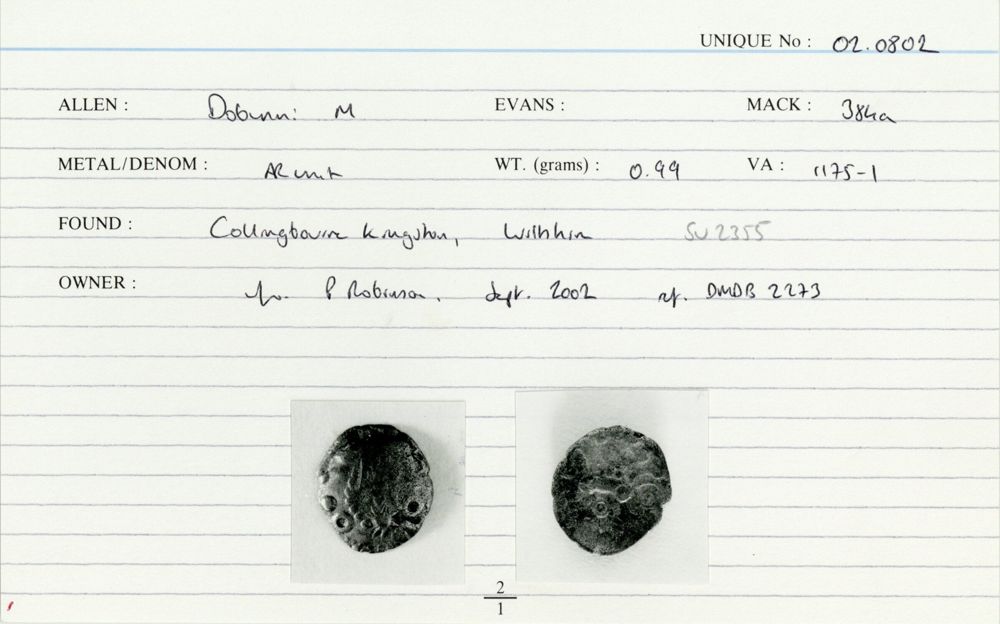 UNIQUE No : 02.0802
ALLEN : Dobunni M EVANS : MACK : 384a
METAL/DENOM : AR unit WT. (grams) : 0.99 VA : 1175-1
FOUND : Collingbourne Kingston, Wiltshire SU 2355
OWNER : P Robinson. Sept. 2002 ref. DMDB 2273
2
1